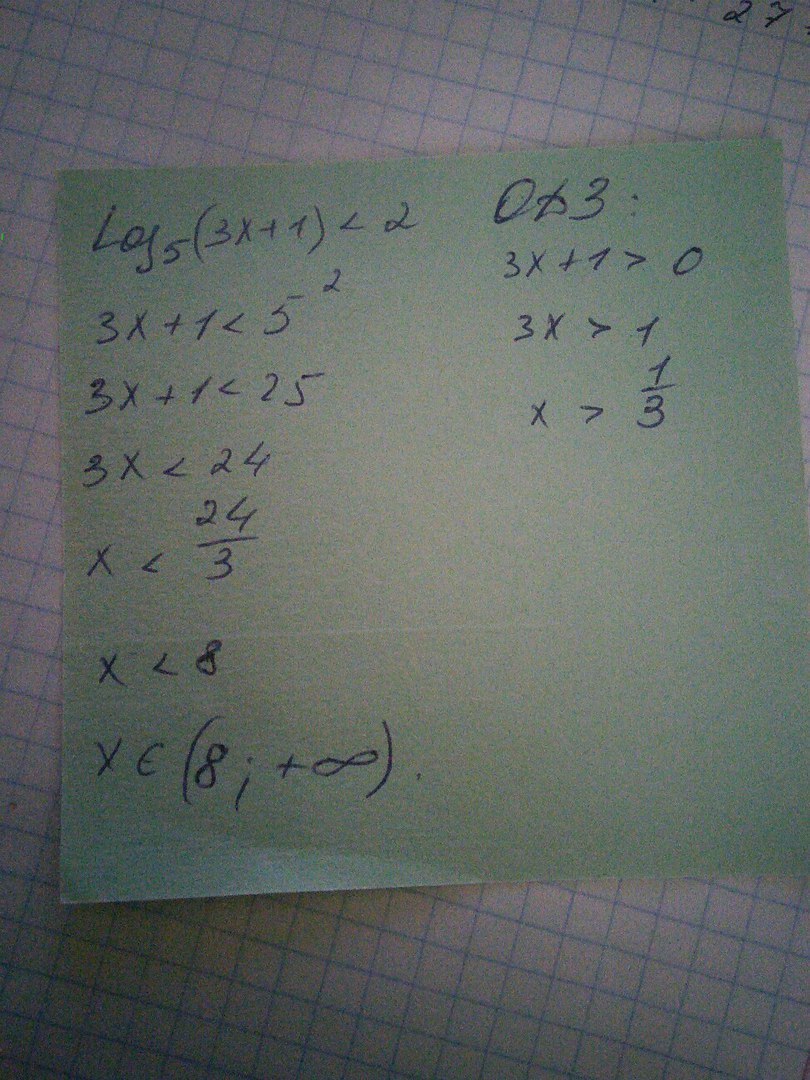 27
Log₅(3x+1) < 2
3x+1 < 5²
3x+1 < 25
3x < 24
x < 24/3
x < 8
x ∈ (8; +∞).
ОДЗ:
3x+1 > 0
3x > 1
x > 1/3